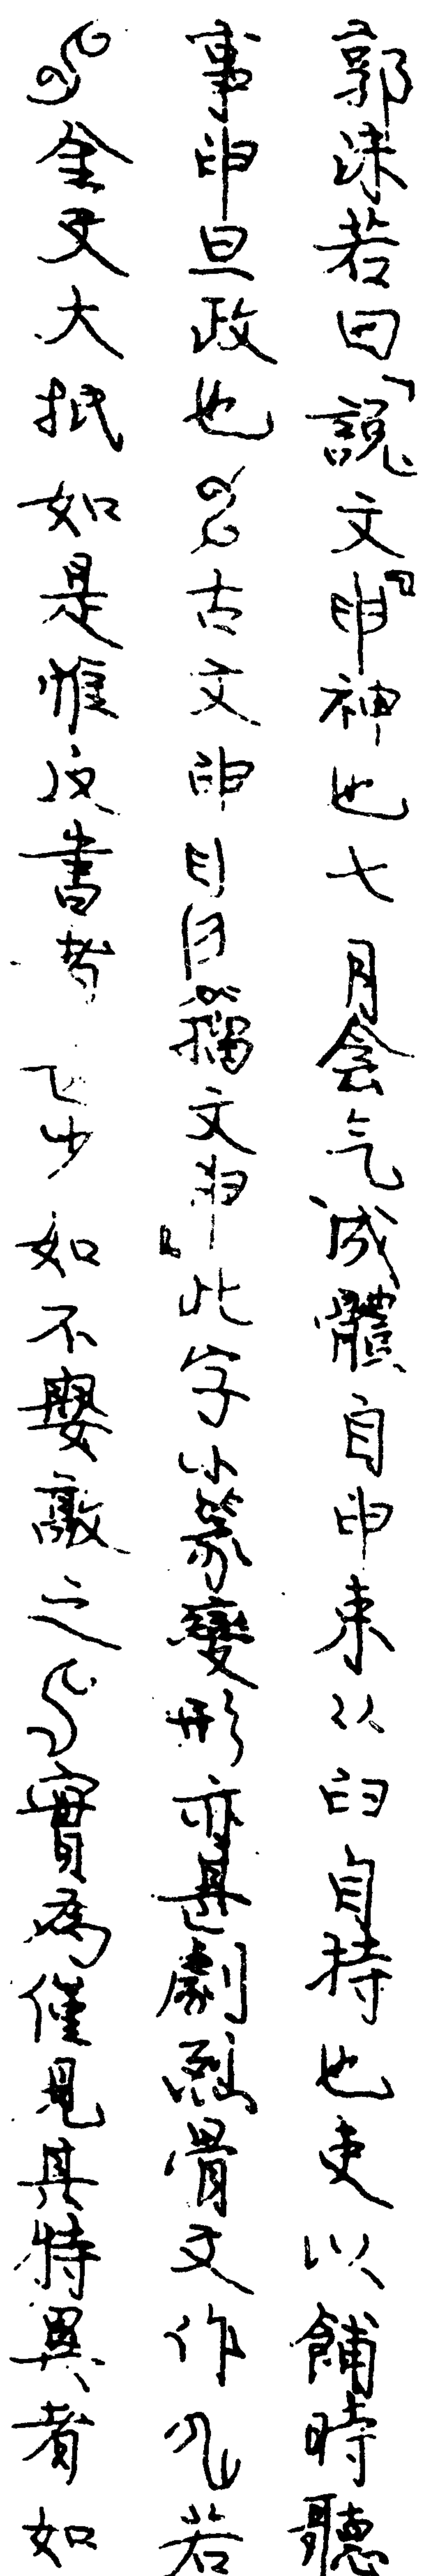 郭沫若曰「說文申神也七月侌气成體自申束从臼自持也吏以餔時聽
事申旦政也古文申籒文申此字小篆變形亦甚劇烈骨文作若
金文大抵如是惟反書者如不𡢁敦之實為僅見其特異者如